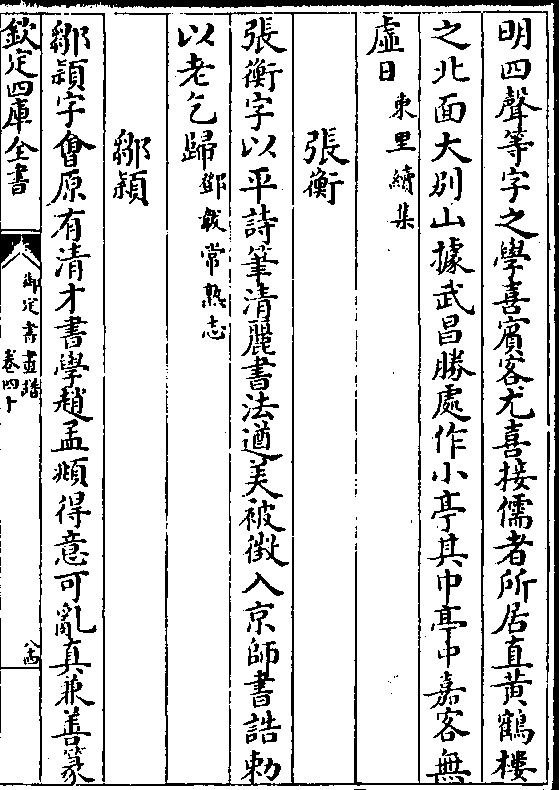 明四聲等字之學喜賓客尤喜接儒者所居直黃鶴樓
之北面大別山據武昌勝處作小亭其中亭中嘉客無
虛日東里續集
張衡
張衡字以平詩筆清麗書法遒美被徴入京師書誥勅
以老乞歸鄧韍常熟志
鄒頴
鄒頴字會原有清才書學趙孟頫得意可亂真兼善篆
欽定四庫全書
御定書畫譜
卷四十